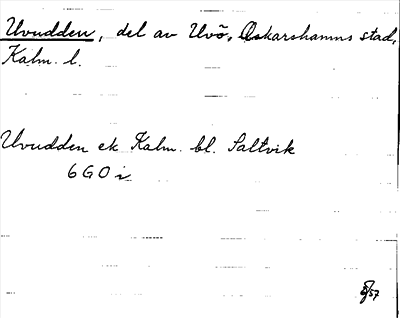 Uvudden, del av Uvö, Oskarshamns stad,
Kalm. l.
Uvudden ek Kalm. bl. Saltvik
6 G O i